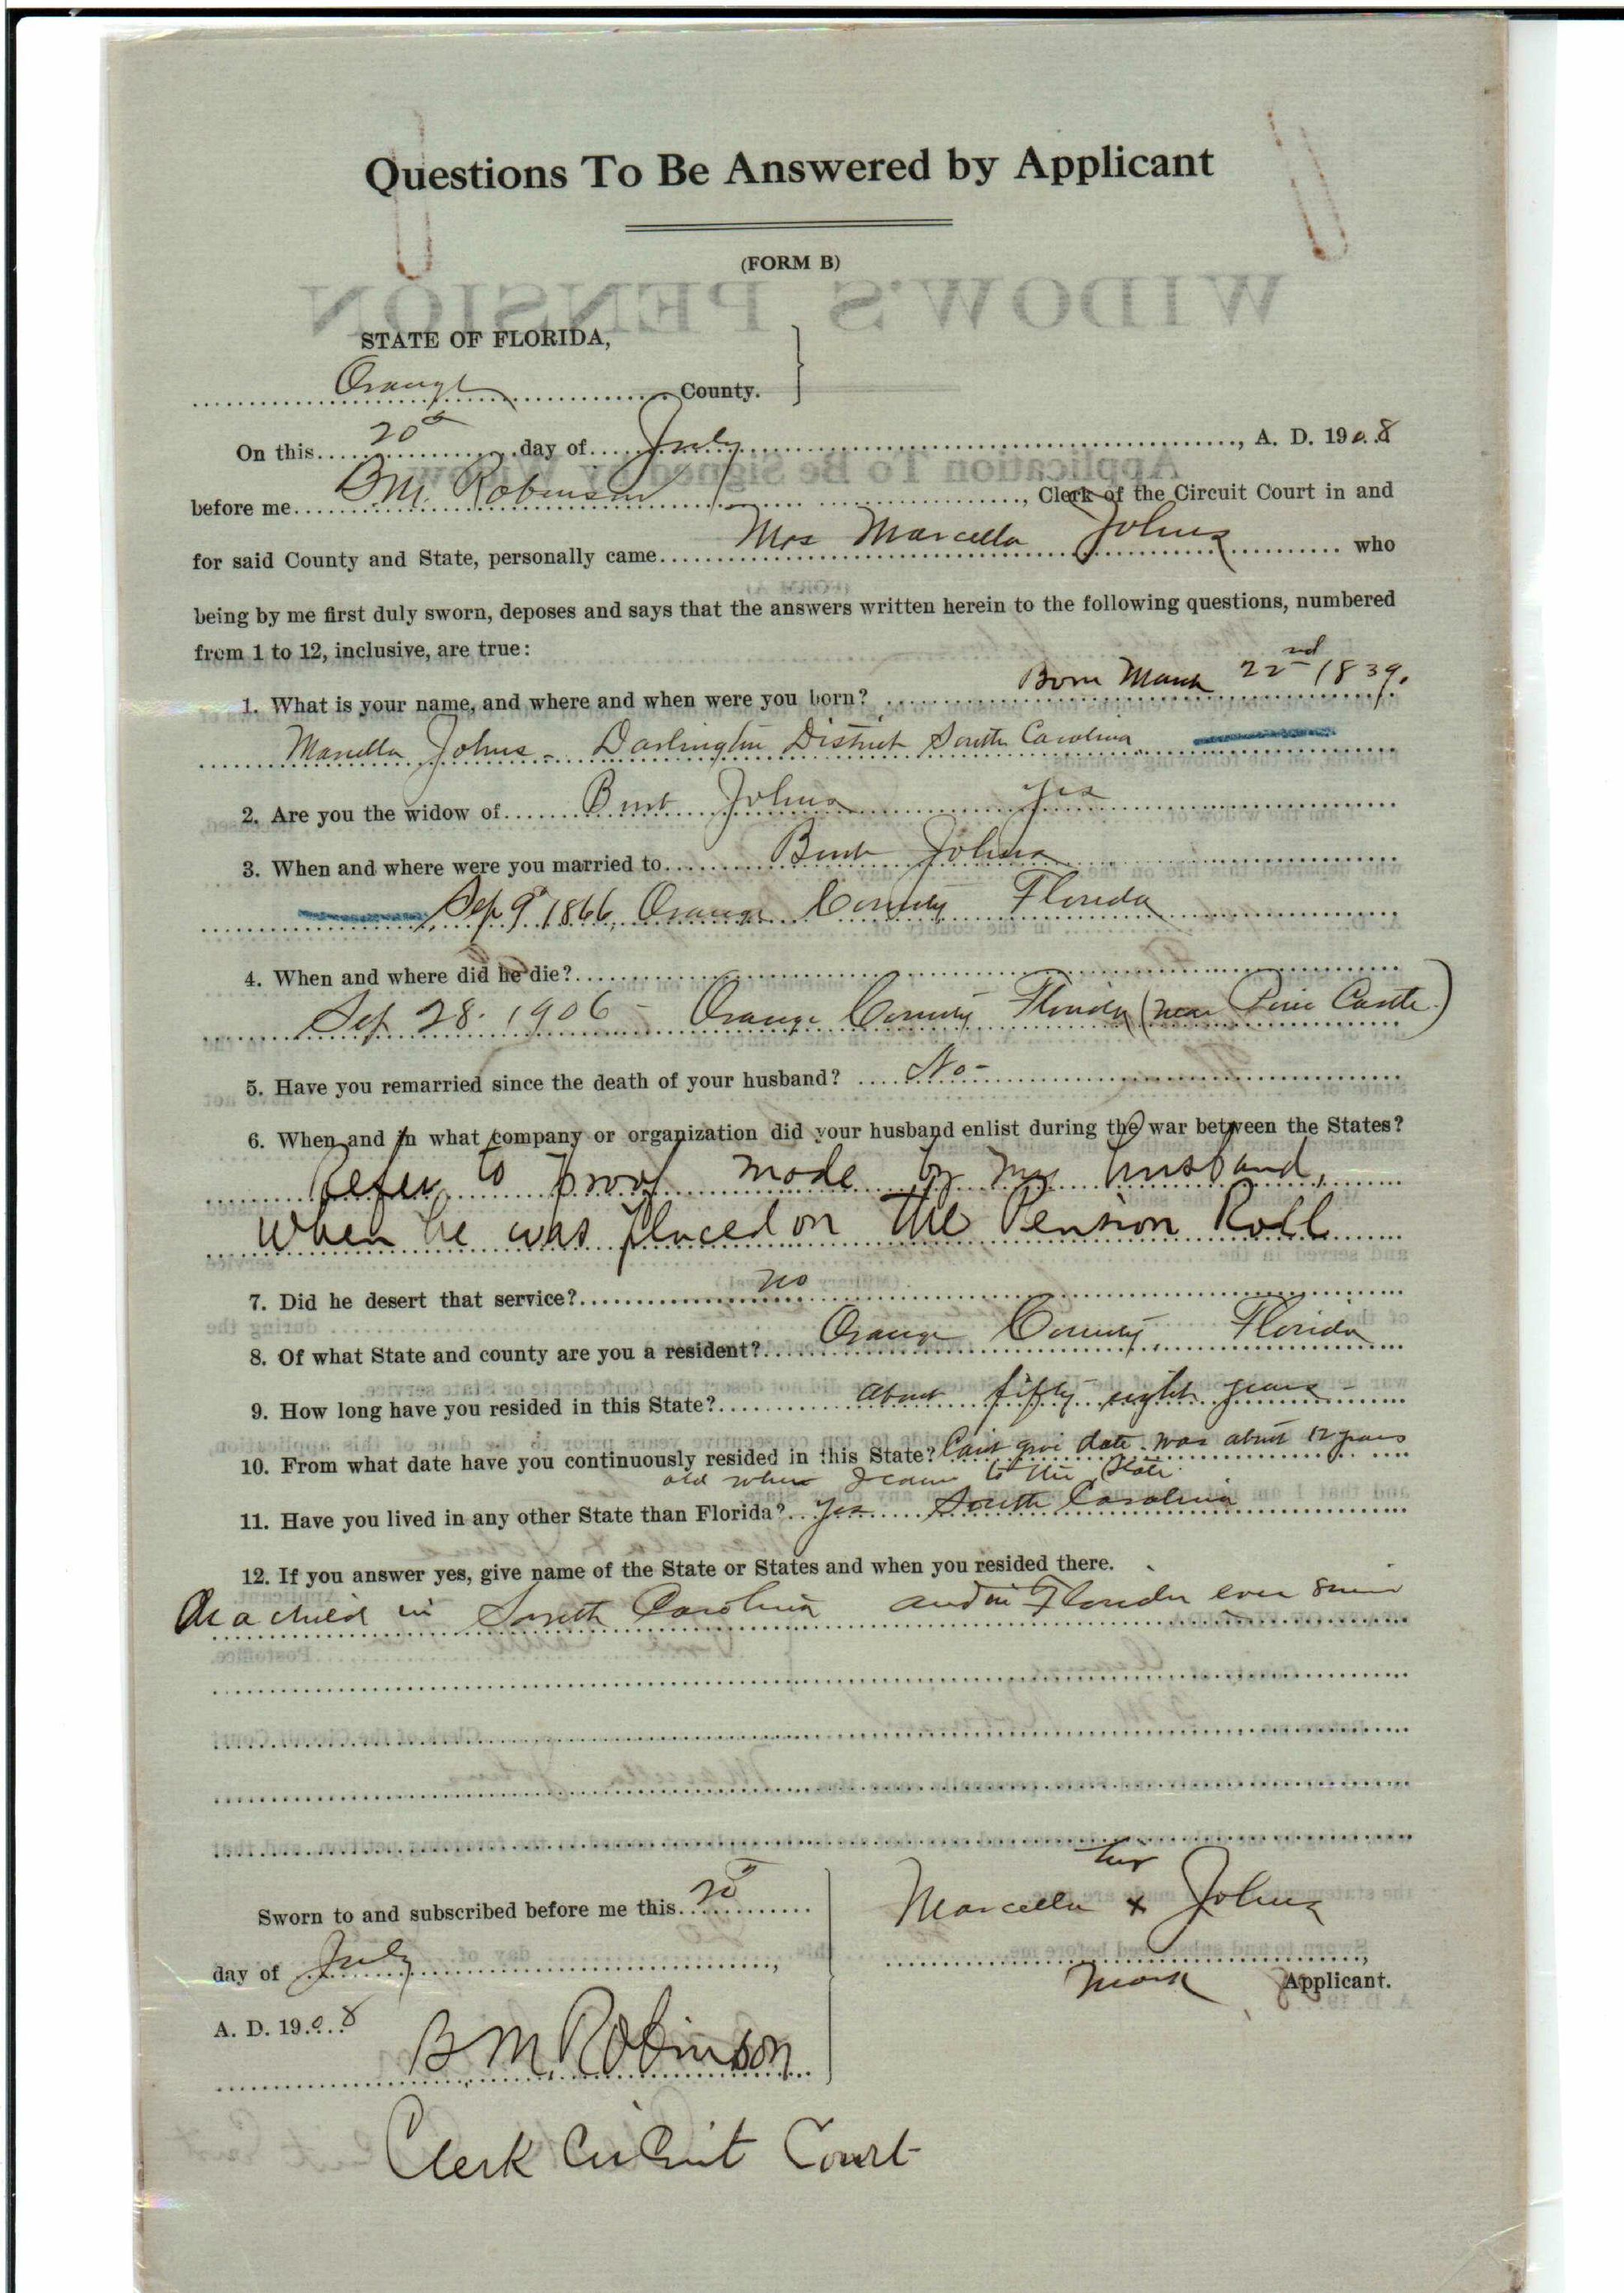 Questions To Be Answered by Applicant
(FORM B)
WIDOW'S PENSION
STATE OF FLORIDA,
Orange County.
On this 20th day of July, A. D. 1908
before me B M. Robinson, Clerk of the Circuit Court in and
for said County and State, personally came Mrs Marcella Johns who
being by me first duly sworn, deposes and says that the answers written herein to the following questions, numbered
from 1 to 12, inclusive, are true:
1. What is your name, and where and when were you born? Born March 22nd 1839.
Marcella Johns - Darlington District South Carolina
2. Are you the widow of Burt Johns yes
3. When and where were you married to Burt Johns
Sep 9th 1866, Orange County Florida
4. When and where did he die?
Sep 28. 1906 - Orange County Florida (near Pine Castle.)
5. Have you remarried since the death of your husband? No-
6. When and in what company or organization did your husband enlist during the war between the States?
Refer to proof made by my husband,
when he was placed on the Pension Roll
7. Did he desert that service? no
8. Of what State and county are you a resident? Orange County, Florida
9. How long have you resided in this State? About fifty eight years -
10. From what date have you continuously resided in this State? Cant give date. was about 12 years
old when I came to the State.
11. Have you lived in any other State than Florida? Yes South Carolina
12. If you answer yes, give name of the State or States and when you resided there.
As a child in South Carolina and in Florida ever since
Sworn to and subscribed before me this 20
day of July,
A. D. 1908
B M. Robinson
Clerk Circuit Court
her
Marcella x Johns
mark Applicant.